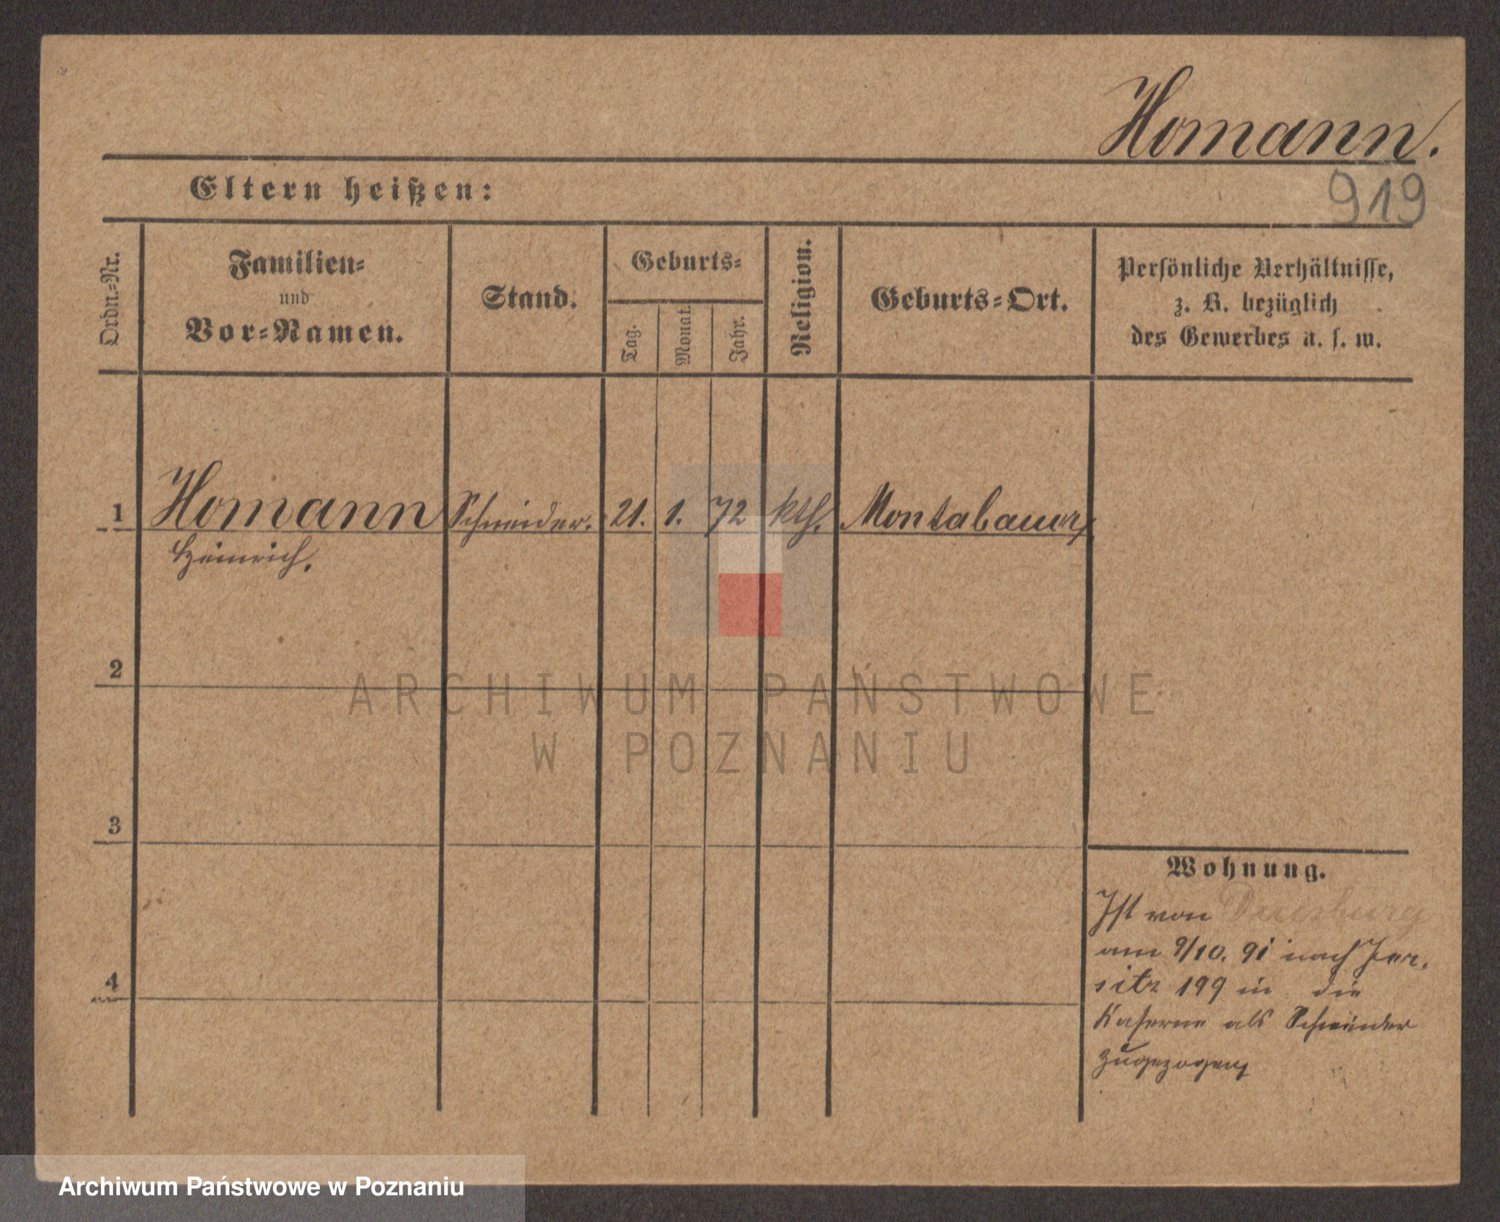 Homann.
919
Eltern heißen:
Ordn.-Nr.
Familien-
und
Vor-Namen.
Stand.
Geburts-
Tag.
Monat.
Jahr.
Religion.
Geburts-Ort.
Persönliche Verhältnisse,
z. B. bezüglich
des Gewerbes u. s. w.
1 Homann Schneider. 21. 1. 72 kth. Montabauer
Heinrich.
2
3
4
Wohnung.
Ist von Duisburg
am 9/10. 91 nach Jer-
sitz 199 in die
Kaserne als Schneider
zugezogen
ARCHIWUM PAŃSTWOWE
W POZNANIU
Archiwum Państwowe w Poznaniu